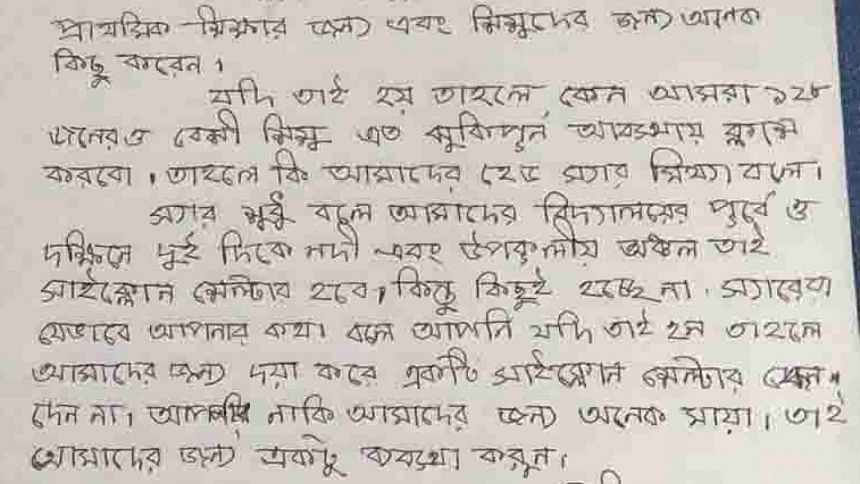 প্রাথমিক শিক্ষার জন্য এবং শিশুদের জন্য অনেক
কিছু করেন।
যদি তাই হয় তাহলে কেন আমরা ১২৮
জনেরও বেশী শিশু এত ঝুকিপুর্ন আবস্থায় ক্লাস
করবো। তাহলে কি আমাদের হেড স্যার মিথ্যা বলে।
স্যার শুধু বলে আমাদের বিদ্যালয়ের পুর্বে ও
দক্ষিনে দুই দিকে নদী এবং উপকুলীয় অঞ্চল তাই
সাইক্লোন শেল্টার হবে, কিন্তু কিছুই হচ্ছে না। স্যারেরা
যেভাবে আপনার কথা বলে আপনি যদি তাই হন তাহলে
আমাদের জন্য দয়া করে একটি সাইক্লোন শেল্টার কেন
দেন না। আপনার নাকি আমাদের জন্য অনেক মায়া। তাই
আমাদের জন্য একটু ব্যবস্থা করুন।